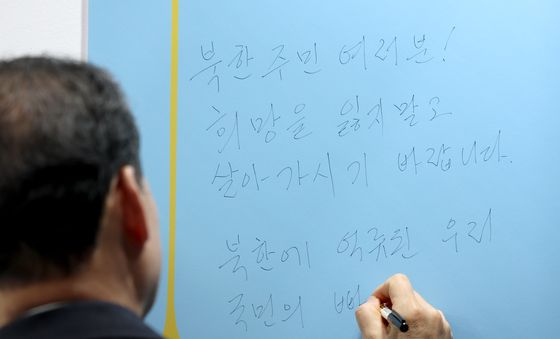 북한주민 여러분!
희망을 잃지말고
살아가시기 바랍니다.
북한에 억류된 우리
국민의